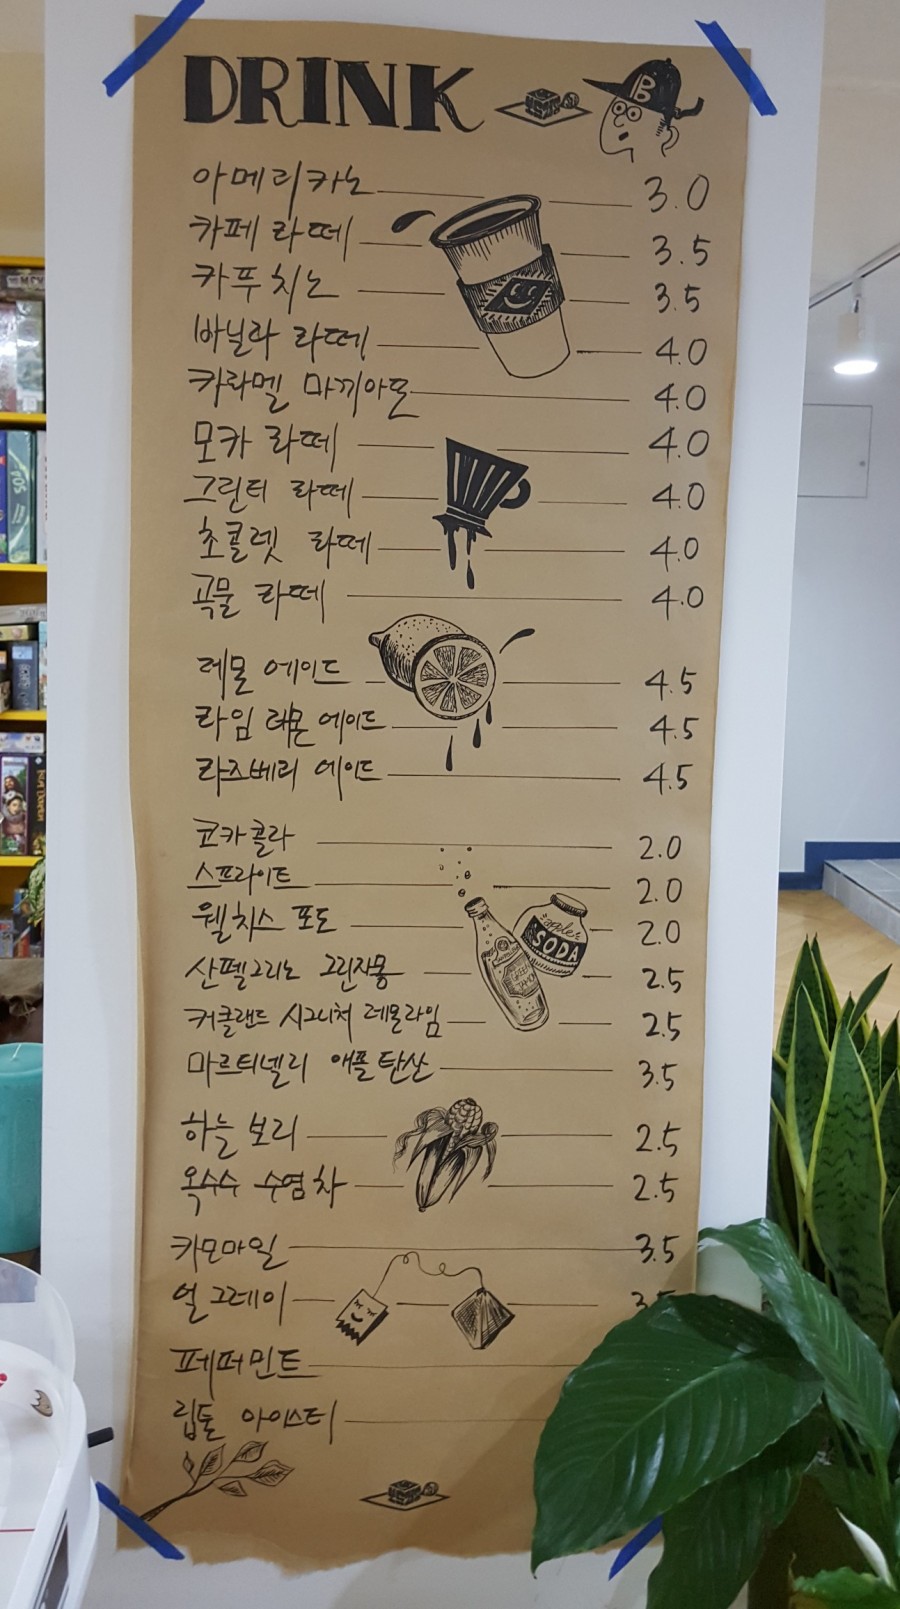 DRINK
B
아메리카노 3.0
카페 라떼 3.5
카푸치노 3.5
바닐라 라떼 4.0
카라멜 마끼아또 4.0
모카 라떼 4.0
그린티 라떼 4.0
초콜렛 라떼 4.0
곡물 라떼 4.0
레몬 에이드 4.5
라임 레몬 에이드 4.5
라즈베리 에이드 4.5
코카콜라 2.0
스프라이트 2.0
웰치스 포도 2.0
apple
SODA
산펠그리노 그린자몽 2.5
커클랜드 시그니처 레몬라임 2.5
마르티넬리 애플탄산 3.5
하늘보리 2.5
옥수수 수염차 2.5
카모마일 3.5
얼그레이 3.5
페퍼민트
립톤 아이스티